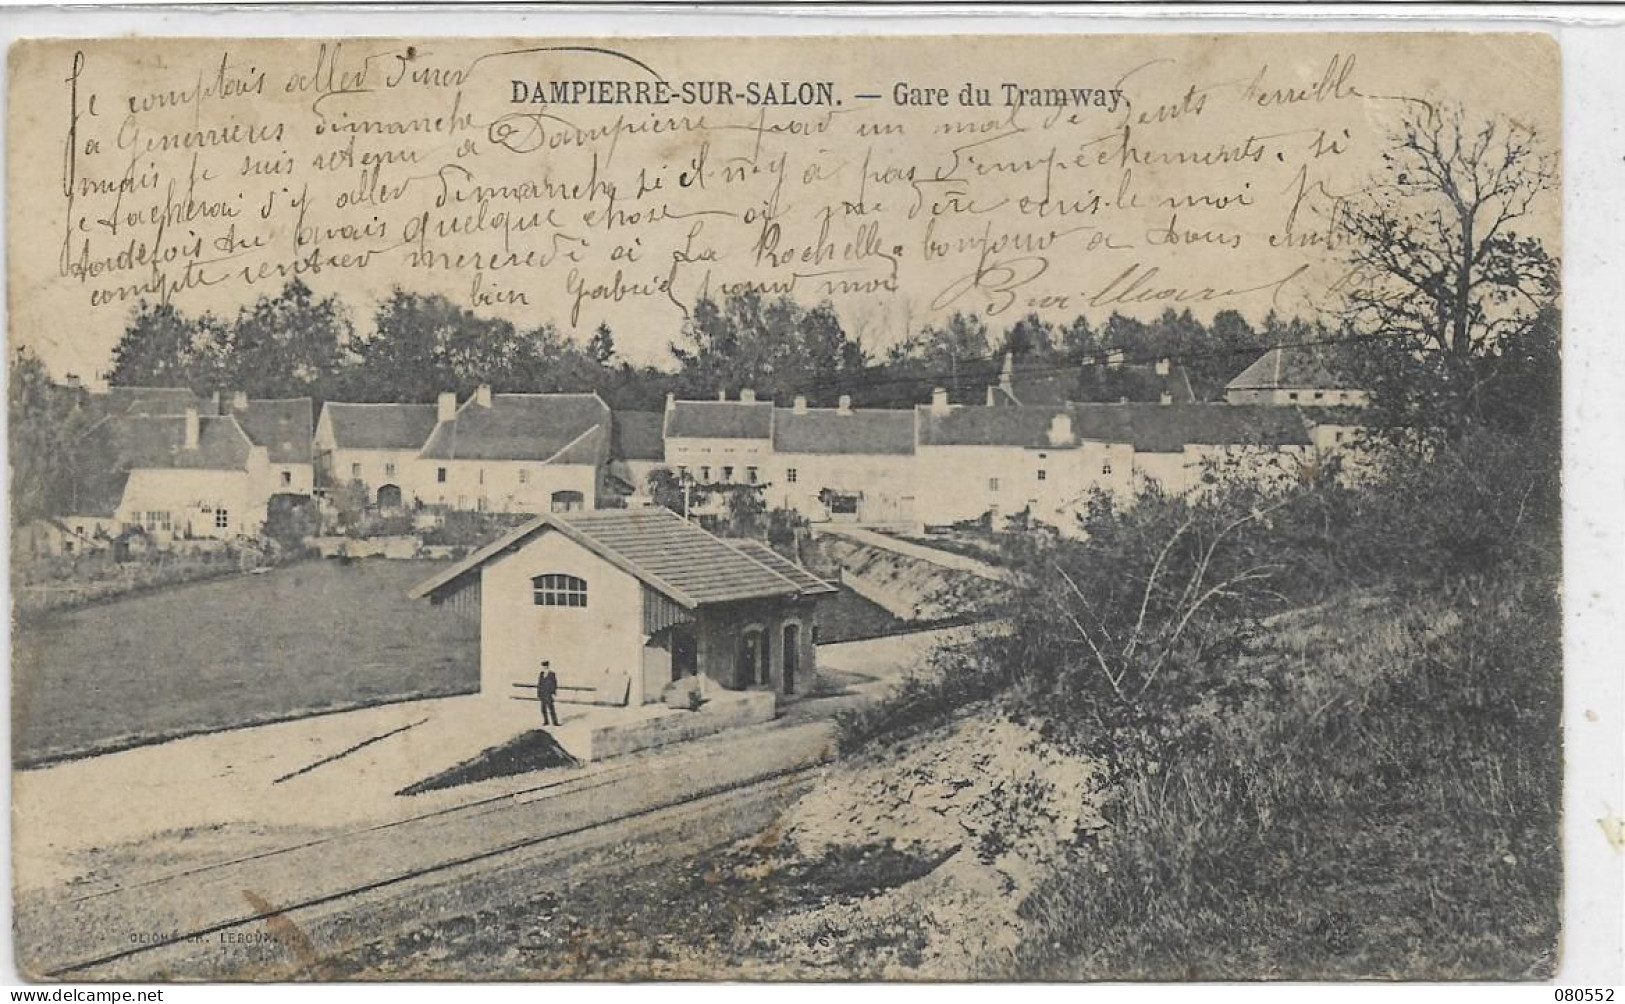 DAMPIERRE-SUR-SALON. — Gare du Tramway.
Je comptais aller diner
a Genevrieres dimanche
mais je suis retenu a Dampierre par un mal de dents terrible
je tacherai d'y aller dimanche si il n'y à pas d'empêchements. si
toutefois tu avais quelque chose a me dire ecris-le moi
compte rentrer mercredi a La Rochelle. bonjour a tous
bien Gabriel pour moi
CLICHÉ CH. LEROUX
080552